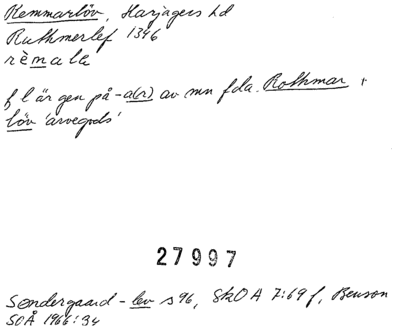 Remmarlöv, Harjagers hd
Ruthmerlef 1346
rèmala
f l är gen på -a(r) av mn fda. Rothmar +
löv 'arvegods'
27997
Søndergaard -lev s 96, SkOA 7:69 f, Benson
SOÅ 1966:34